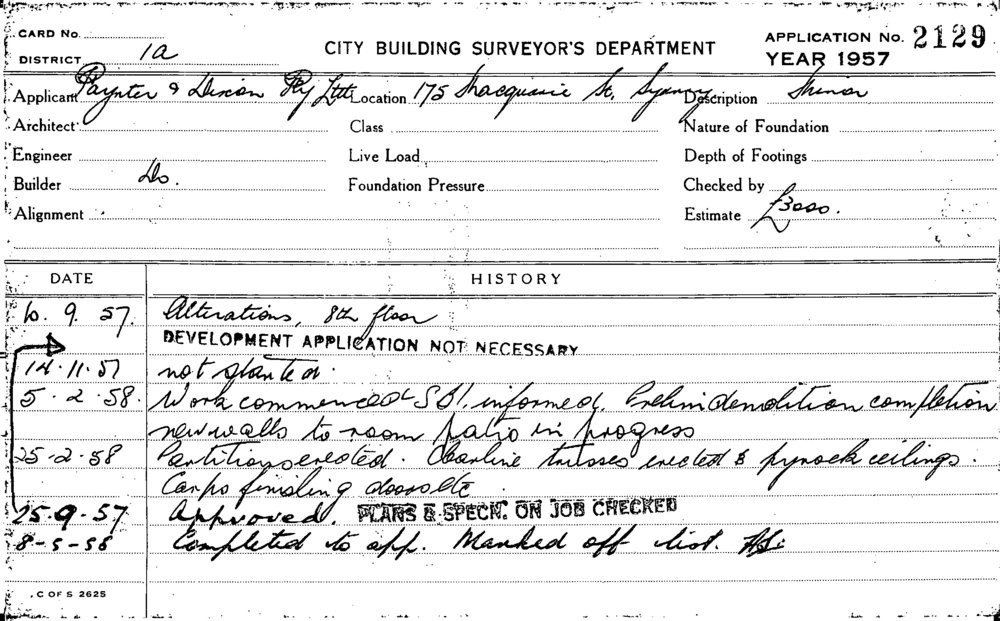 CARD No.
DISTRICT 1a
CITY BUILDING SURVEYOR'S DEPARTMENT
APPLICATION No. 2129
YEAR 1957
Applicant Paynter & Dixon Pty Ltd Location 175 Macquarie St. Sydney Description Minor
Architect Class Nature of Foundation
Engineer Live Load Depth of Footings
Builder Do. Foundation Pressure Checked by
Alignment Estimate £3000.
DATE HISTORY
6. 9. 57. Alterations, 8th floor
DEVELOPMENT APPLICATION NOT NECESSARY
14.11.57 not started.
5.2.58. Work commenced informed. Prelim demolition completion
new walls to room patio in progress
25-2-58 Partitions erected. trusses erected & pyrock ceilings.
Carps finishing doors etc
25.9.57 Approved. PLANS & SPECN. ON JOB CHECKED
8-5-58 Completed to app. Marked off list.
C OF S 2625